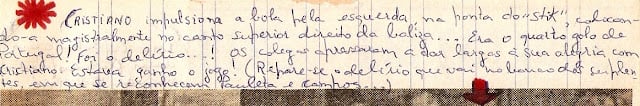 CRISTIANO impulsiona a bola pela esquerda, na ponta do "stik", colocan-
do-a magistralmente no canto superior direito da baliza... Era o quarto golo de
Portugal! Foi o delírio...! Os colegas apressaram a dar largas à sua alegria com
Cristiano: Estava ganho o jogo! (Repare-se o delírio que vai no banco dos suplen-
tes, em que se reconhecem Pauleta e Campos...)